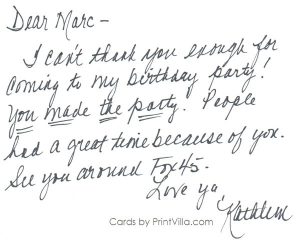 Dear Marc -
I can't thank you enough for
coming to my birthday party!
You made the party. People
had a great time because of you.
See you around Fox45.
Love ya
Kathleen
Cards by PrintVilla.com